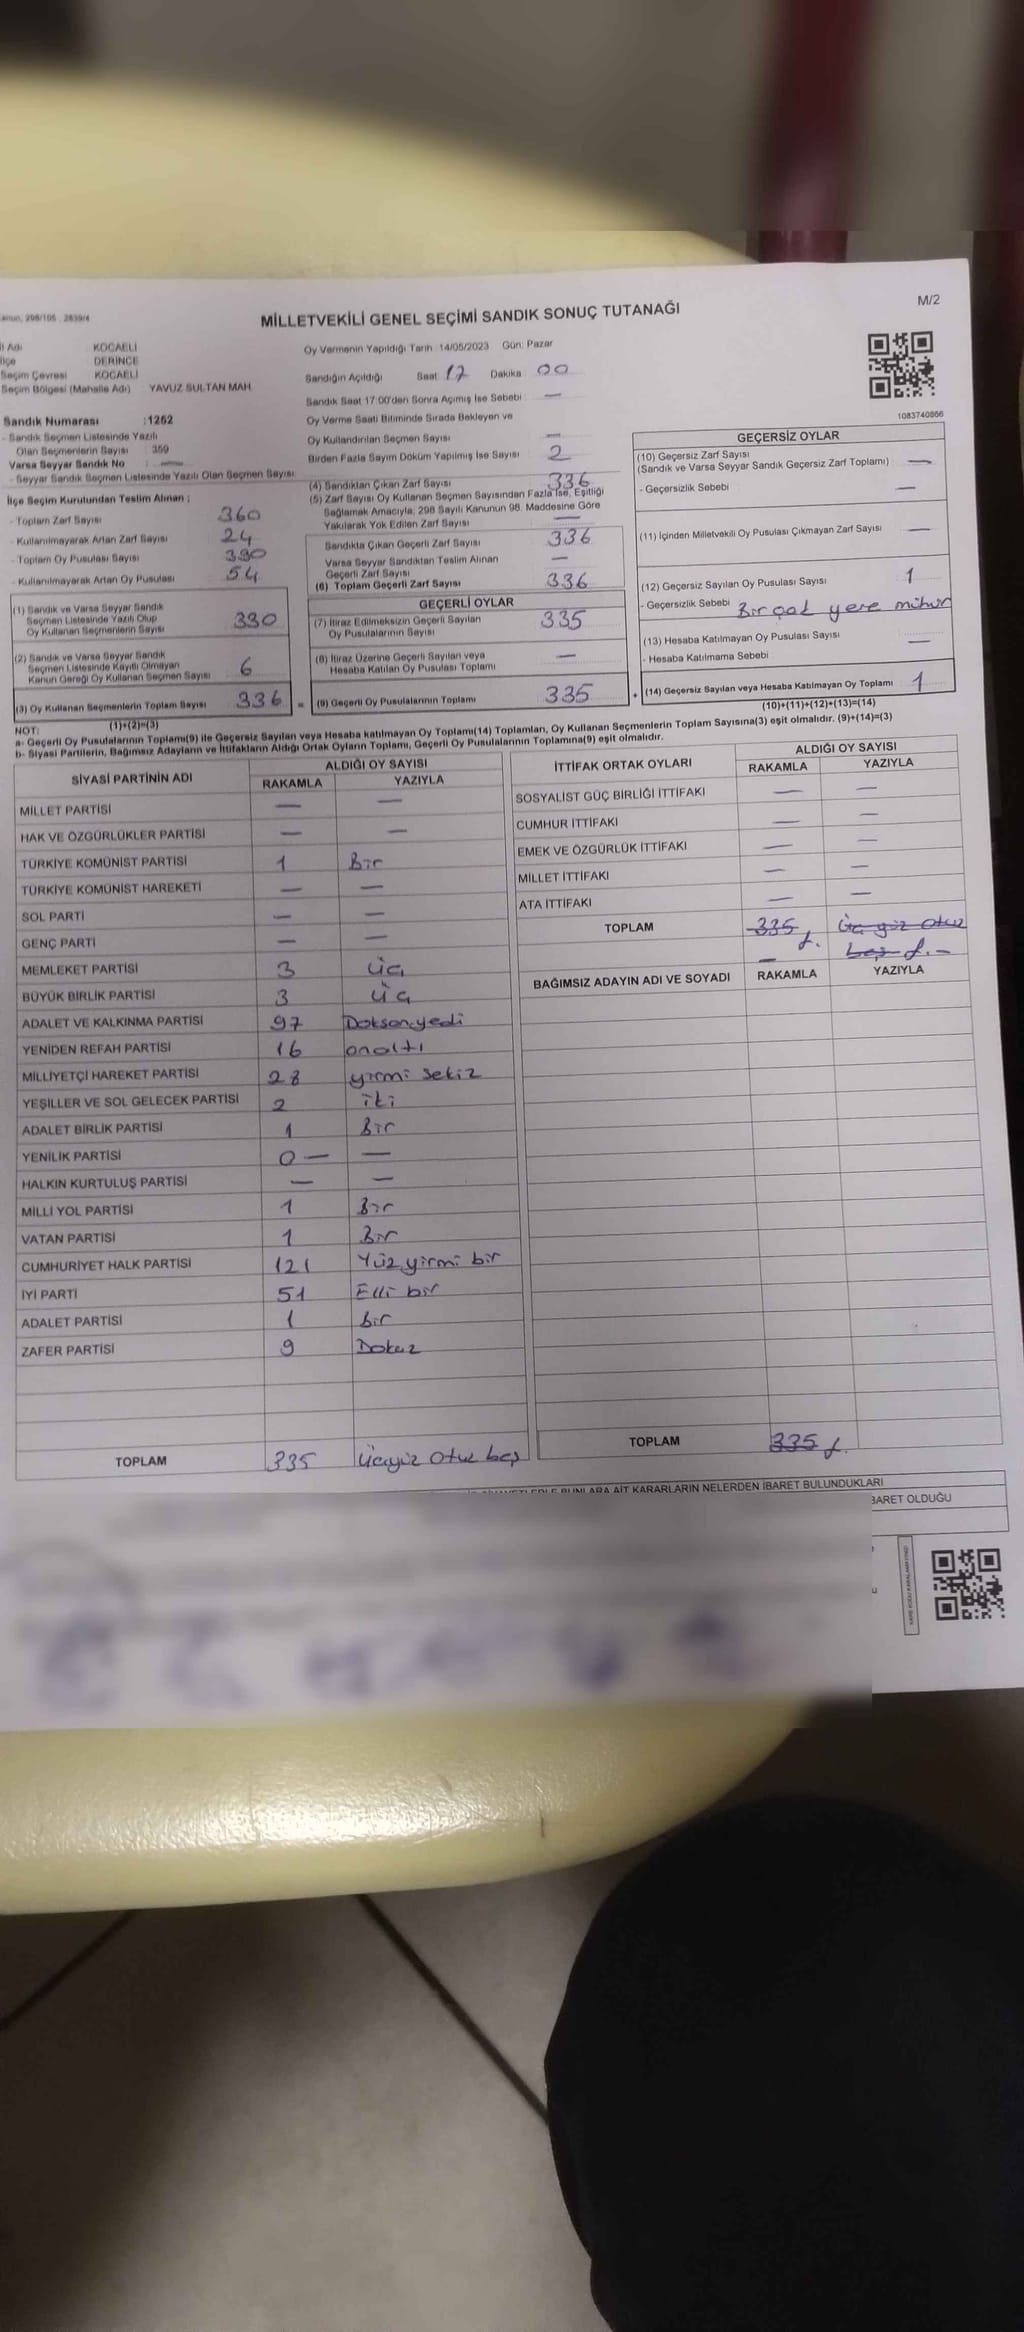 MİLLETVEKİLİ GENEL SEÇİMİ SANDIK SONUÇ TUTANAĞI
M/2
KOCAELİ
DERİNCE
Seçim Çevresi KOCAELİ
Seçim Bölgesi (Mahalle Adı) YAVUZ SULTAN MAH.
Oy Vermenin Yapıldığı Tarih 14/05/2023 Gün: Pazar
Sandığın Açıldığı Saat 17 Dakika 00
Sandık Saat 17:00'den Sonra Açılmış İse Sebebi —
Oy Verme Saati Bitiminde Sırada Bekleyen ve
Oy Kullandırılan Seçmen Sayısı —
Birden Fazla Sayım Döküm Yapılmış İse Sayısı 2
1083740866
Sandık Numarası :1262
- Sandık Seçmen Listesinde Yazılı
Olan Seçmenlerin Sayısı : 359
Varsa Seyyar Sandık No : —
- Seyyar Sandık Seçmen Listesinde Yazılı Olan Seçmen Sayısı:
İlçe Seçim Kurulundan Teslim Alınan ;
- Toplam Zarf Sayısı 360
- Kullanılmayarak Artan Zarf Sayısı 24
- Toplam Oy Pusulası Sayısı 390
- Kullanılmayarak Artan Oy Pusulası 54
(1) Sandık ve Varsa Seyyar Sandık
Seçmen Listesinde Yazılı Olup
Oy Kullanan Seçmenlerin Sayısı 330
(2) Sandık ve Varsa Seyyar Sandık
Seçmen Listesinde Kayıtlı Olmayan
Kanun Gereği Oy Kullanan Seçmen Sayısı 6
(3) Oy Kullanan Seçmenlerin Toplam Sayısı 336 =
(1)+(2)=(3)
(4) Sandıktan Çıkan Zarf Sayısı 336
(5) Zarf Sayısı Oy Kullanan Seçmen Sayısından Fazla İse, Eşitliği
Sağlamak Amacıyla, 298 Sayılı Kanunun 98. Maddesine Göre
Yakılarak Yok Edilen Zarf Sayısı —
Sandıkta Çıkan Geçerli Zarf Sayısı 336
Varsa Seyyar Sandıktan Teslim Alınan
Geçerli Zarf Sayısı —
(6) Toplam Geçerli Zarf Sayısı 336
GEÇERLİ OYLAR
(7) İtiraz Edilmeksizin Geçerli Sayılan
Oy Pusulalarının Sayısı 335
(8) İtiraz Üzerine Geçerli Sayılan veya
Hesaba Katılan Oy Pusulası Toplamı —
(9) Geçerli Oy Pusulalarının Toplamı 335 +
GEÇERSİZ OYLAR
(10) Geçersiz Zarf Sayısı
(Sandık ve Varsa Seyyar Sandık Geçersiz Zarf Toplamı) —
- Geçersizlik Sebebi —
(11) İçinden Milletvekili Oy Pusulası Çıkmayan Zarf Sayısı —
(12) Geçersiz Sayılan Oy Pusulası Sayısı 1
- Geçersizlik Sebebi Bir çok yere mühür
(13) Hesaba Katılmayan Oy Pusulası Sayısı —
- Hesaba Katılmama Sebebi
(14) Geçersiz Sayılan veya Hesaba Katılmayan Oy Toplamı 1
(10)+(11)+(12)+(13)=(14)
NOT:
a- Geçerli Oy Pusulalarının Toplamı(9) ile Geçersiz Sayılan veya Hesaba katılmayan Oy Toplamı(14) Toplamları, Oy Kullanan Seçmenlerin Toplam Sayısına(3) eşit olmalıdır. (9)+(14)=(3)
b- Siyasi Partilerin, Bağımsız Adayların ve İttifakların Aldığı Ortak Oyların Toplamı, Geçerli Oy Pusulalarının Toplamına(9) eşit olmalıdır.
SİYASİ PARTİNİN ADI
ALDIĞI OY SAYISI
RAKAMLA YAZIYLA
MİLLET PARTİSİ — —
HAK VE ÖZGÜRLÜKLER PARTİSİ — —
TÜRKİYE KOMÜNİST PARTİSİ 1 Bir
TÜRKİYE KOMÜNİST HAREKETİ — —
SOL PARTİ — —
GENÇ PARTİ — —
MEMLEKET PARTİSİ 3 üç
BÜYÜK BİRLİK PARTİSİ 3 üç
ADALET VE KALKINMA PARTİSİ 97 Doksanyedi
YENİDEN REFAH PARTİSİ 16 onaltı
MİLLİYETÇİ HAREKET PARTİSİ 28 yirmi sekiz
YEŞİLLER VE SOL GELECEK PARTİSİ 2 iki
ADALET BİRLİK PARTİSİ 1 Bir
YENİLİK PARTİSİ 0 — —
HALKIN KURTULUŞ PARTİSİ — —
MİLLİ YOL PARTİSİ 1 Bir
VATAN PARTİSİ 1 Bir
CUMHURİYET HALK PARTİSİ 121 Yüz yirmi bir
İYİ PARTİ 51 Elli bir
ADALET PARTİSİ 1 bir
ZAFER PARTİSİ 9 Dokuz
TOPLAM 335 Üçyüz otuz beş
İTTİFAK ORTAK OYLARI
ALDIĞI OY SAYISI
RAKAMLA YAZIYLA
SOSYALİST GÜÇ BİRLİĞİ İTTİFAKI — —
CUMHUR İTTİFAKI — —
EMEK VE ÖZGÜRLÜK İTTİFAKI — —
MİLLET İTTİFAKI — —
ATA İTTİFAKI — —
TOPLAM 335 Üç yüz otuz
beş
BAĞIMSIZ ADAYIN ADI VE SOYADI RAKAMLA YAZIYLA
TOPLAM 335
BUNLARA AİT KARARLARIN NELERDEN İBARET BULUNDUKLARI
BARET OLDUĞU